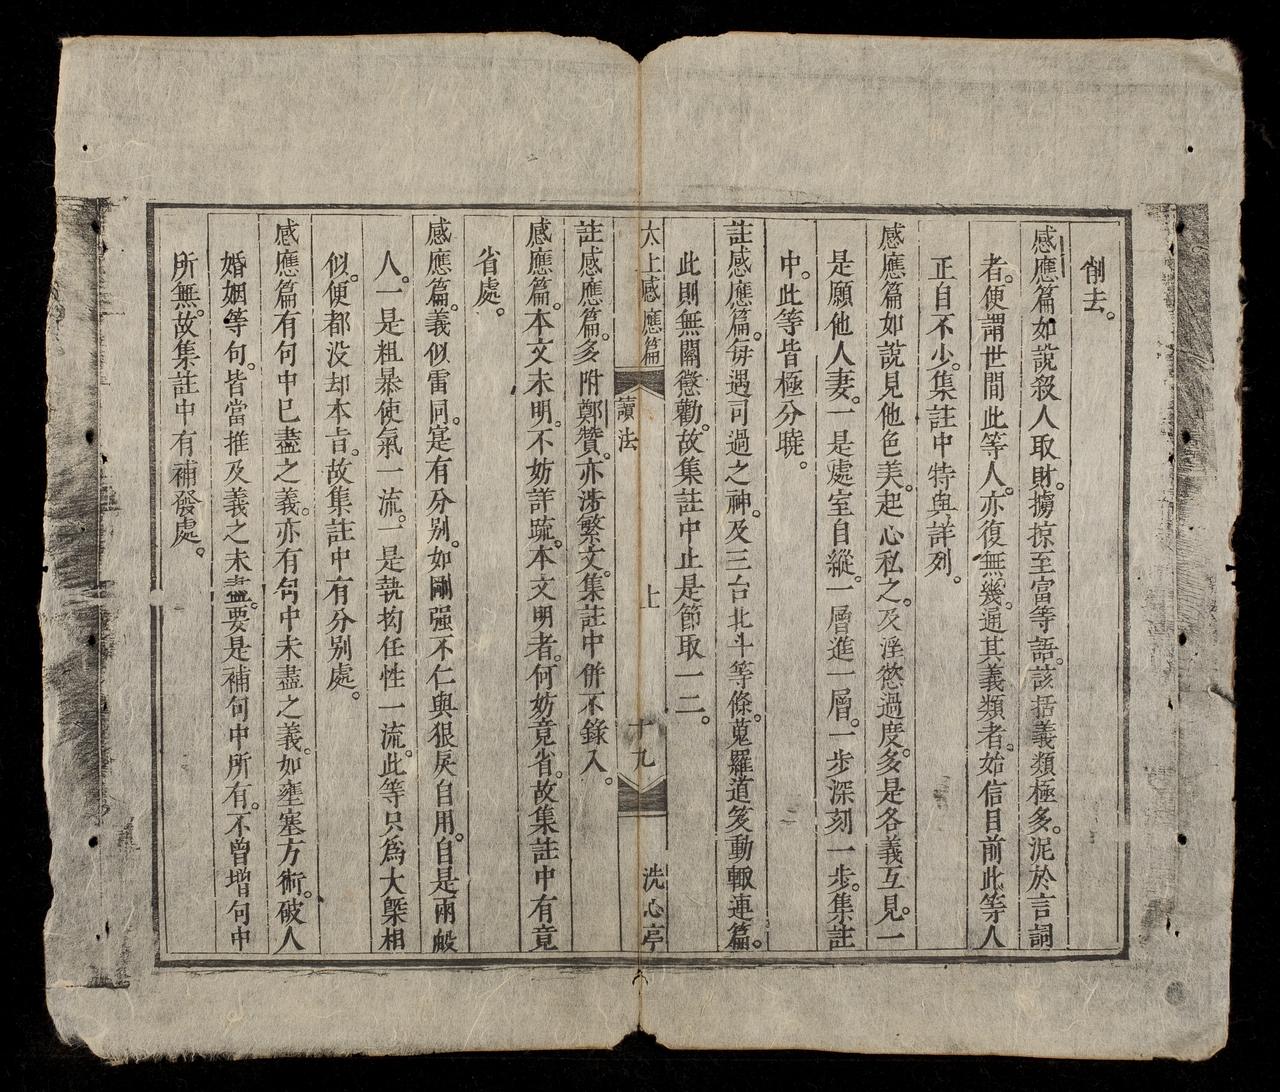 削去。
感應篇如說殺人取財。擄掠至富等語。該括義類極多。泥於言詞
者。便謂世間此等人。亦復無幾。通其義類者。始信目前此等人
正自不少。集註中特與詳列。
感應篇如說見他色美。起心私之。及淫慾過度。多是各義互見。一
是願他人妻。一是處室自縱。一層進一層。一步深刻一步。集註
中。此等皆極分曉。
註感應篇。每遇司過之神。及三台北斗等條。蒐羅道笈。動輙連篇。
此則無關懲勸。故集註中止是節取一二。
太上感應篇 讀法 上 十九 洗心亭
註感應篇。多附鄭贊。亦涉繁文。集註中併不錄入。
感應篇。本文未明。不妨詳疏。本文明者。何妨竟省。故集註中有竟
省處。
感應篇。義似雷同。寔有分别。如剛强不仁與狠戾自用。自是兩般
人。一是粗暴使氣一流。一是執抝任性一流。此等只爲大槩相
似。便都没却本㫖。故集註中有分别處。
感應篇有句中已盡之義。亦有句中未盡之義。如壅塞方術。破人
婚姻等句。皆當推及義之未盡。要是補句中所有。不曾增句中
所無。故集註中有補發處。